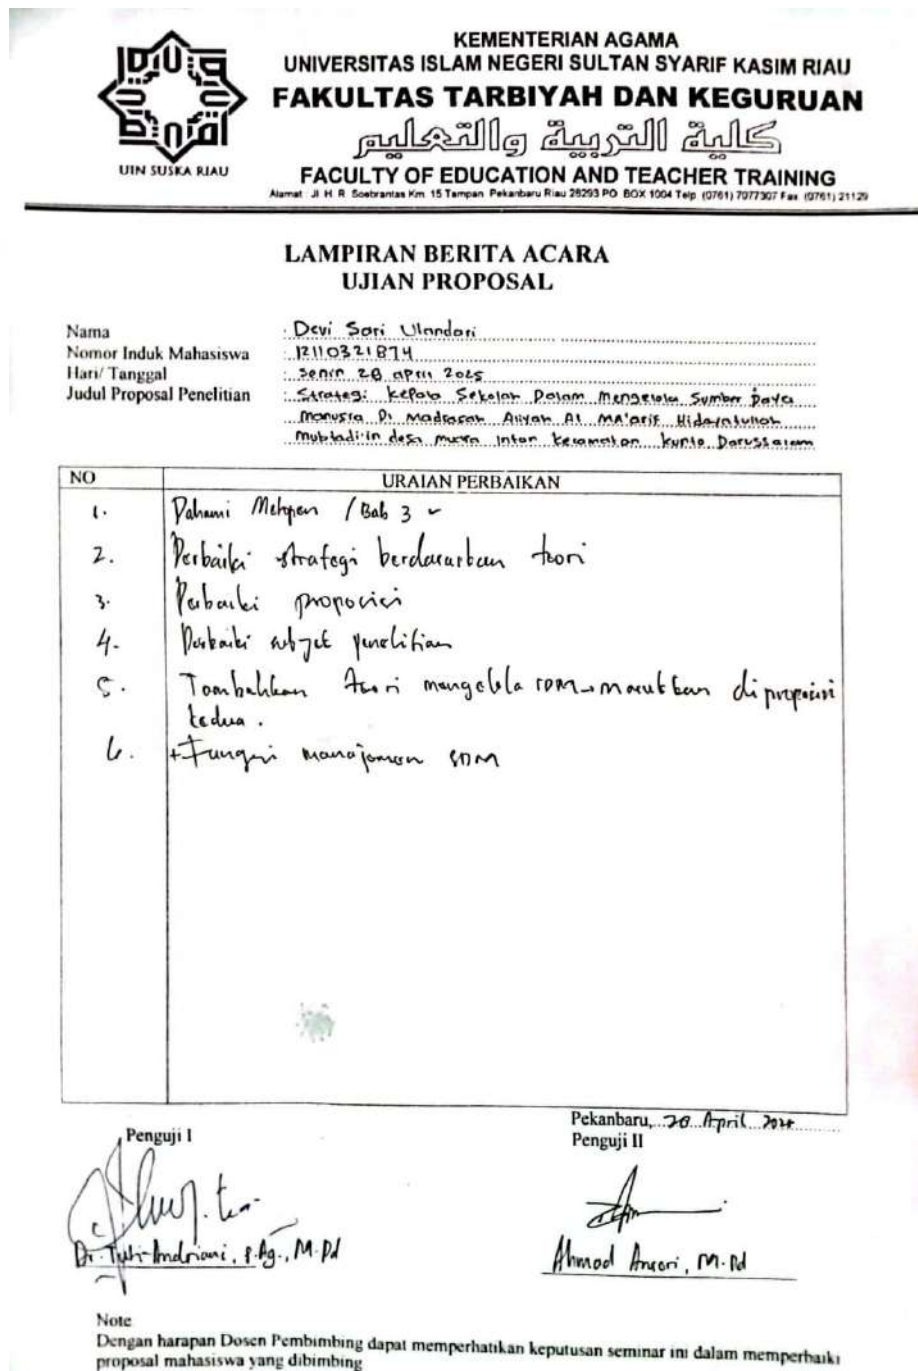 KEMENTERIAN AGAMA
UNIVERSITAS ISLAM NEGERI SULTAN SYARIF KASIM RIAU
FAKULTAS TARBIYAH DAN KEGURUAN
كلية التربية والتعليم
FACULTY OF EDUCATION AND TEACHER TRAINING
Alamat : Jl. H. R. Soebrantas Km. 15 Tampan Pekanbaru Riau 28293 PO. BOX 1004 Telp. (0761) 7077307 Fax. (0761) 21129
UIN SUSKA RIAU
LAMPIRAN BERITA ACARA
UJIAN PROPOSAL
Nama : Devi Sari Ulandari
Nomor Induk Mahasiswa : 12110321874
Hari/ Tanggal : Senin 28 april 2025
Judul Proposal Penelitian : Strategi Kepala Sekolah Dalam Mengelola Sumber Daya
Manusia Di Madrasah Aliyah Al Ma'arif Hidayatullah
Mubtadi'in desa muara intan kecamatan kunto Darussalam
NO URAIAN PERBAIKAN
1. Pahami Metopen / Bab 3
2. Perbaiki strategi berdasarkan teori
3. Perbaiki proposisi
4. Perbaiki subjek penelitian
5. Tambahkan teori mengelola SDM → masukkan di proposisi
kedua.
6. + Fungsi manajemen SDM
Pekanbaru, 28 April
Penguji I
Penguji II
Dr. Tuti Andriani, S.Ag., M.Pd
Ahmad Ansori, M.Pd
Note
Dengan harapan Dosen Pembimbing dapat memperhatikan keputusan seminar ini dalam memperbaiki
proposal mahasiswa yang dibimbing